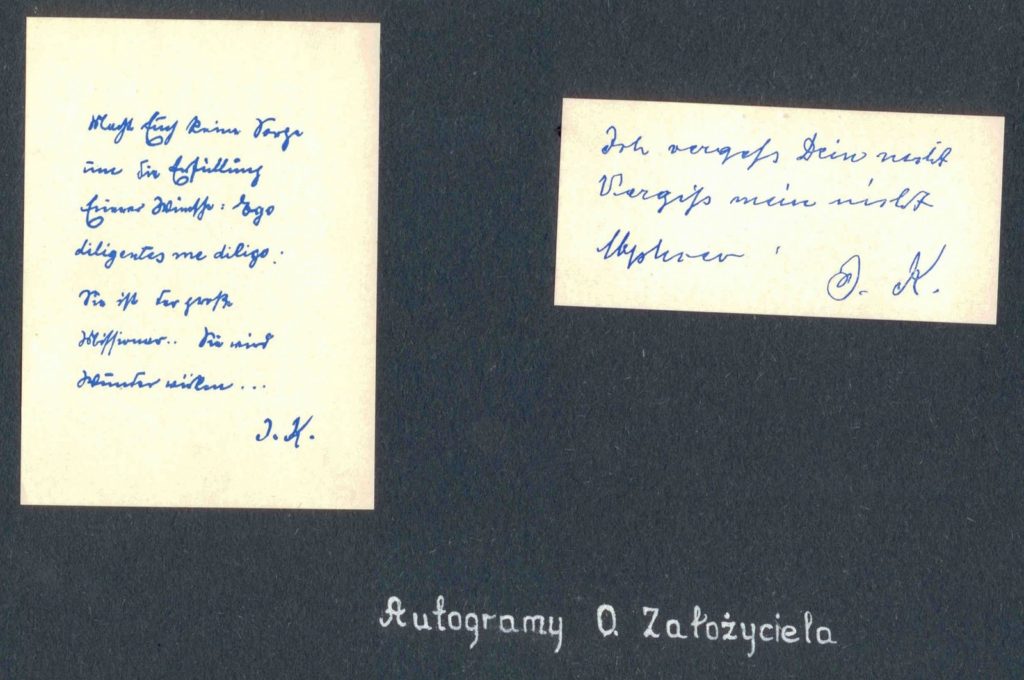 Macht Euch keine Sorge
um die Erfüllung
Eurer Wünsche: Ego
diligentes me diligo.
Sie ist der große
Missionar.. Sie wird
Wunder wirken...
J. K.
Ich vergeß Dein nicht
Vergiß mein nicht
J. K.
Autogramy O. Założyciela